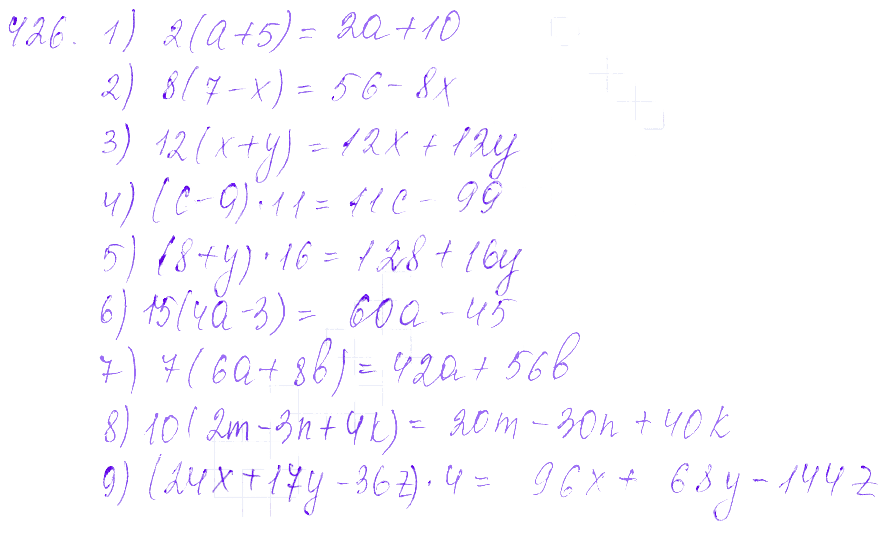 426. 1) 2(a+5) = 2a+10
2) 8(7-x) = 56-8x
3) 12(x+y) = 12x + 12y
4) (c-9)·11 = 11c - 99
5) (8+y)·16 = 128 + 16y
6) 15(4a-3) = 60a - 45
7) 7(6a+8b) = 42a + 56b
8) 10(2m-3n+4k) = 20m - 30n + 40k
9) (24x+17y-36z)·4 = 96x + 68y - 144z